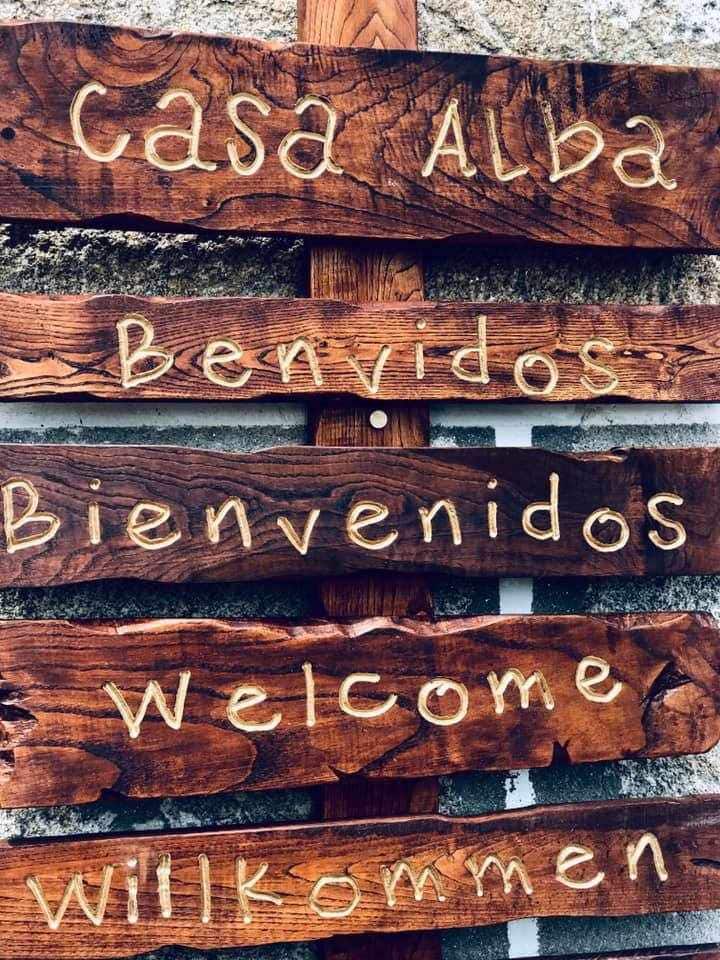 Casa Alba
Benvidos
Bienvenidos
Welcome
Willkommen